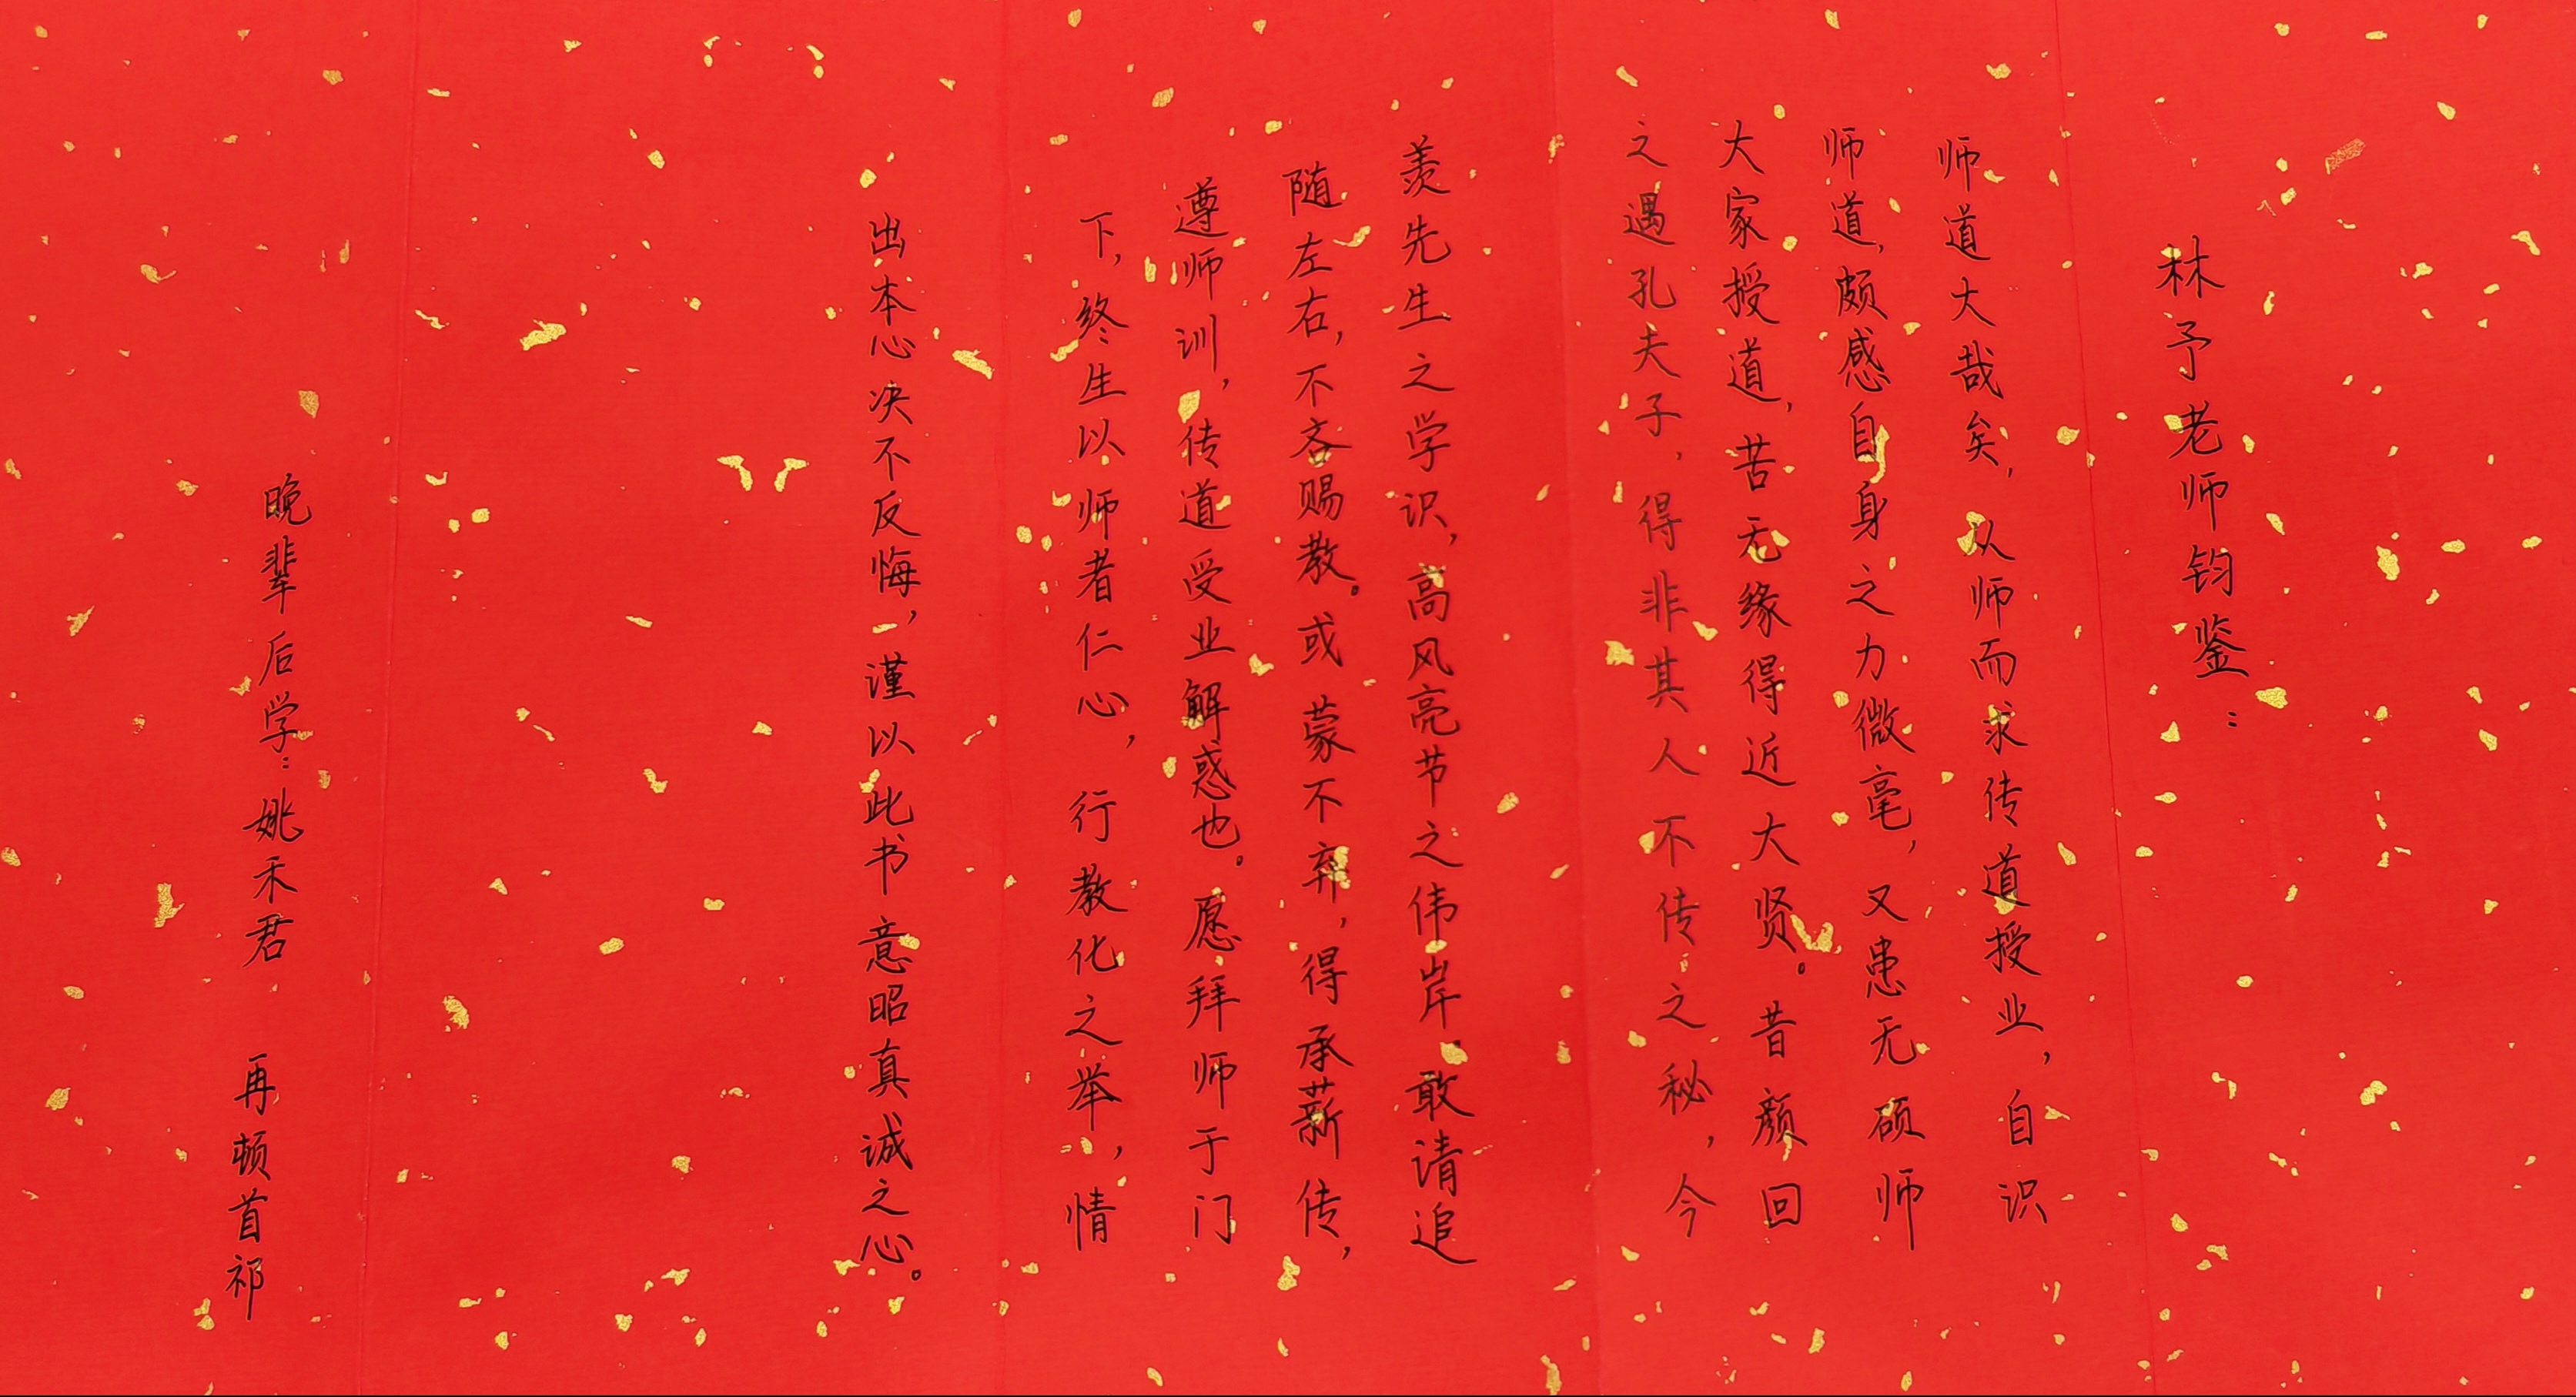 林予老师钧鉴：
师道大哉矣，从师而求传道授业，自识
师道，颇感自身之力微毫，又患无硕师
大家授道，苦无缘得近大贤。昔颜回
之遇孔夫子，得非其人不传之秘，今
羡先生之学识，高风亮节之伟岸，敢请追
随左右，不吝赐教。或蒙不弃，得承薪传，
遵师训，传道受业解惑也。愿拜师于门
下，终生以师者仁心，行教化之举，情
出本心决不反悔，谨以此书意昭真诚之心。
晚辈后学：姚禾君 再顿首祁